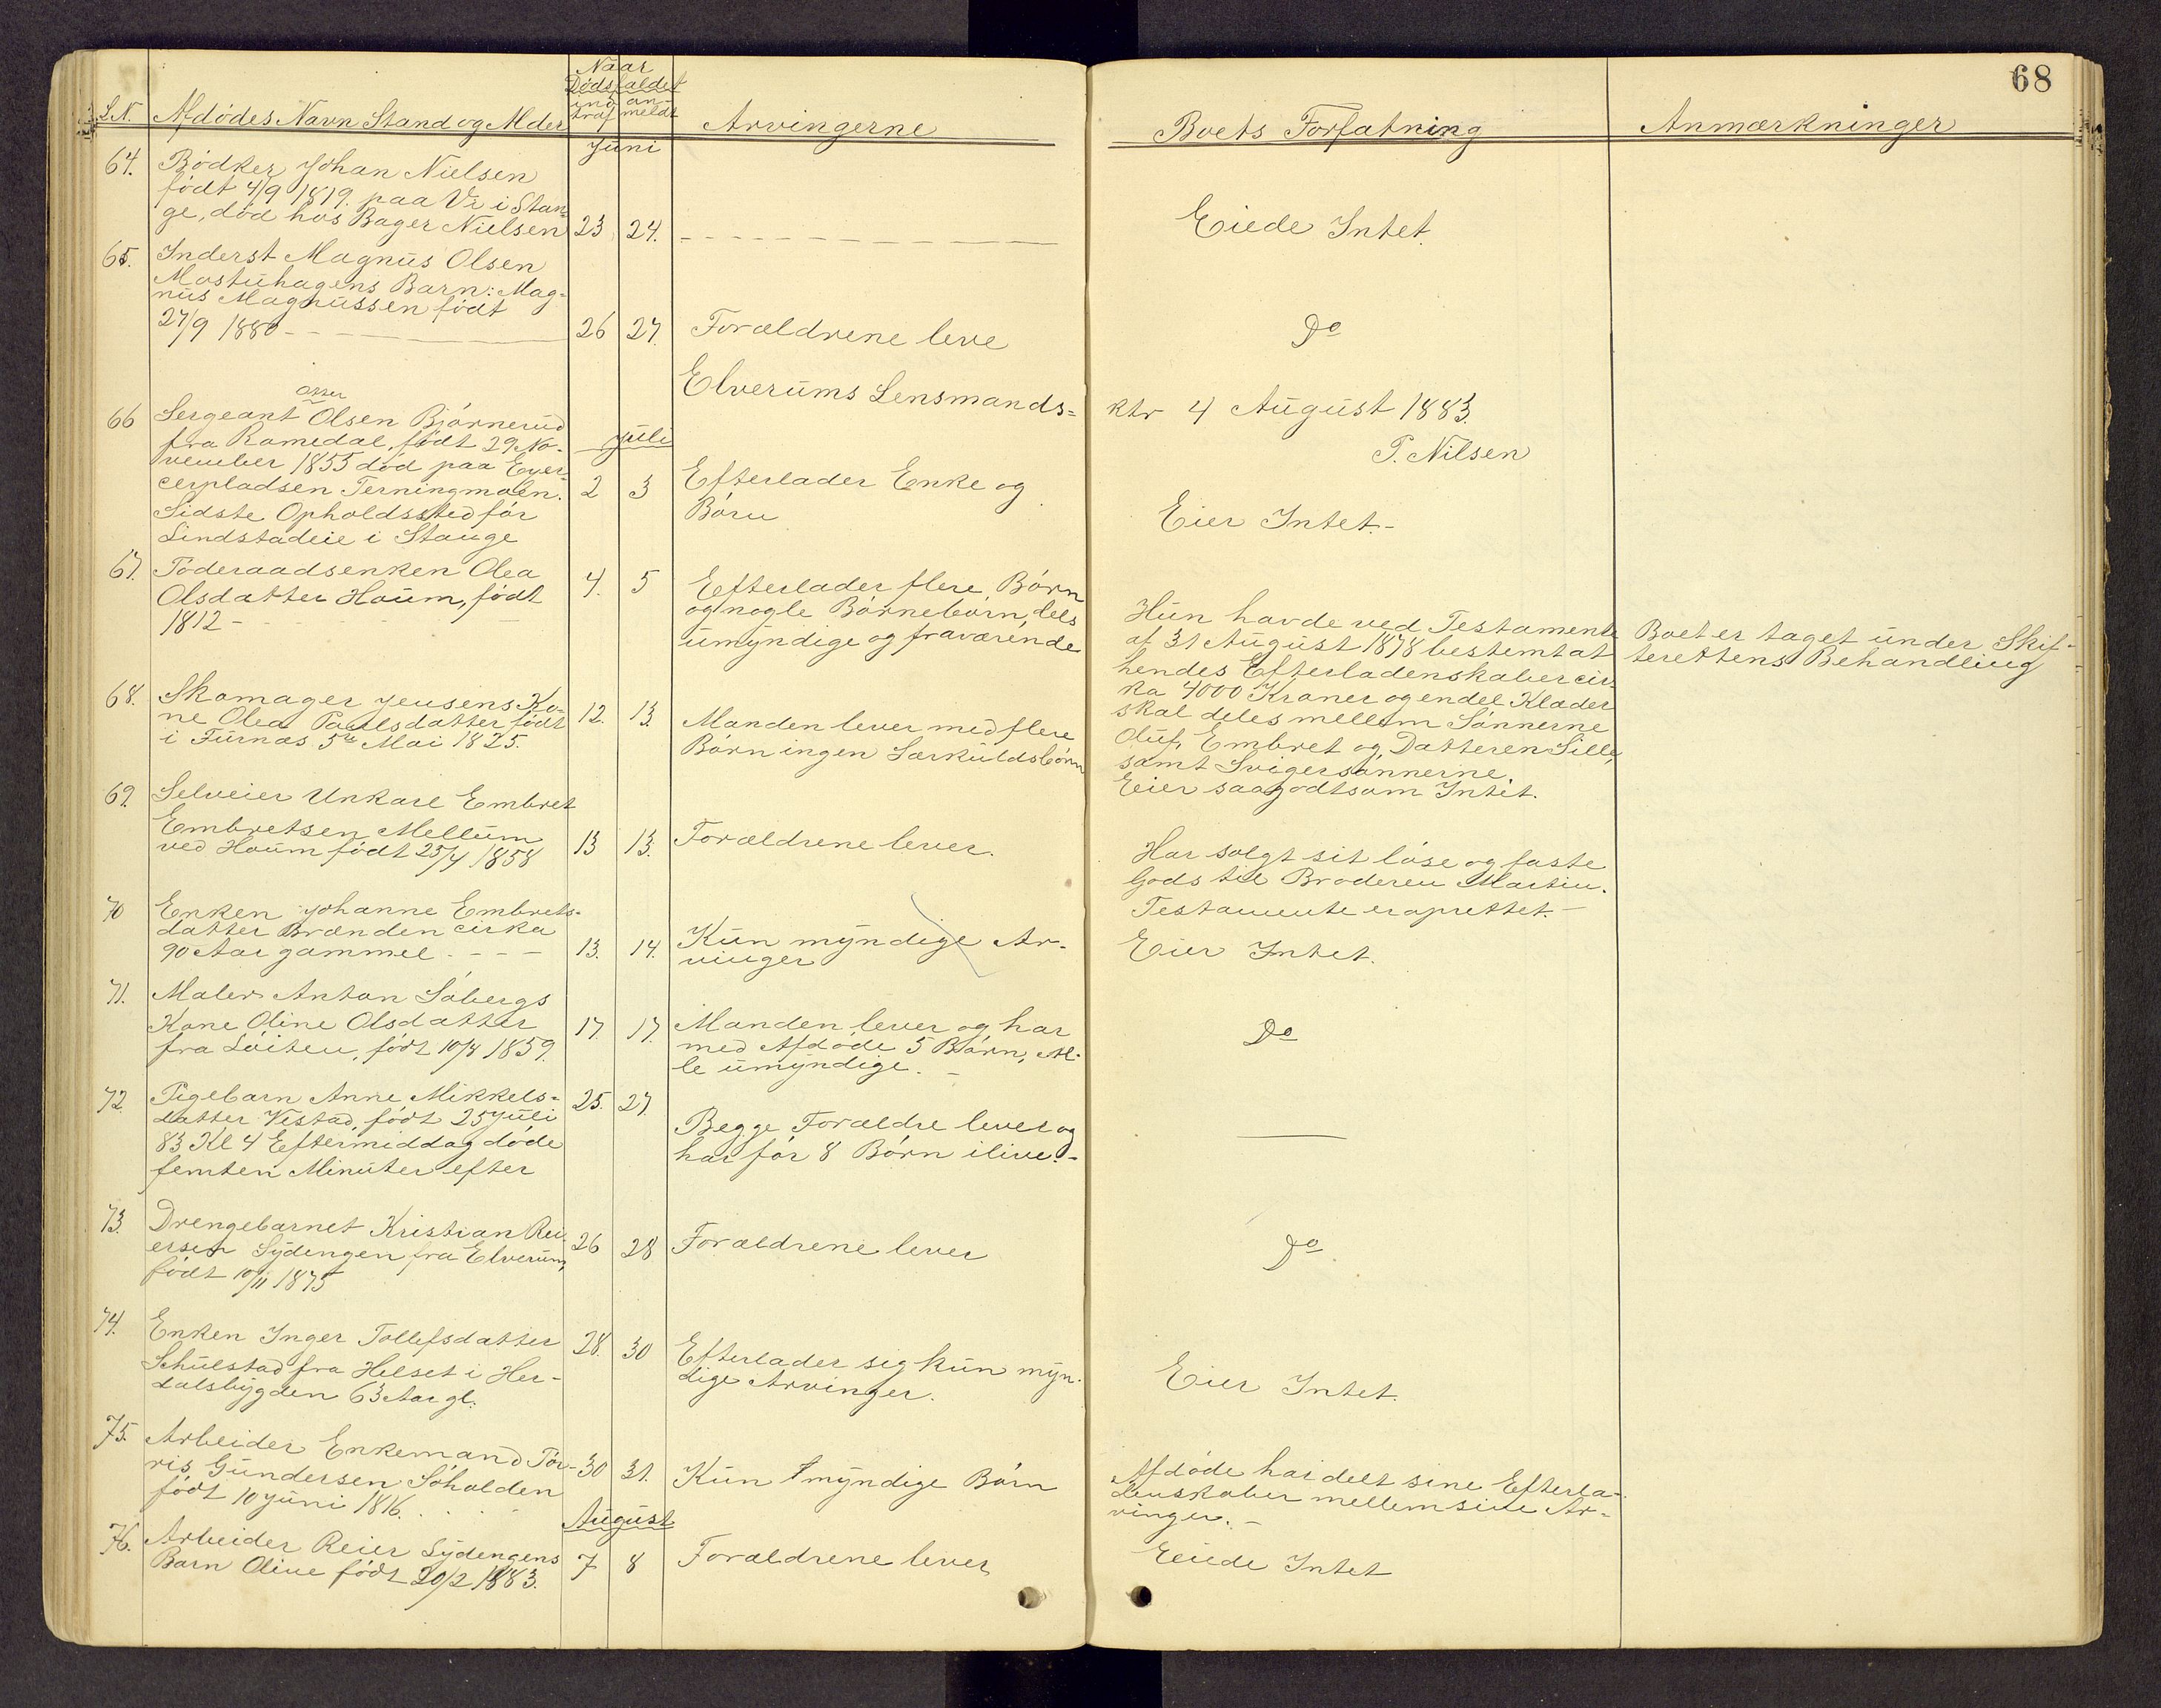 68
L.N.
Afdödes Navn Stand og Alder
Naar
Dödsfaldet
ind
traf
an-
meldt
Arvingerne
Boets Forfatning
Anmærkninger
Juni
64.
Bödker Johan Nielsen
födt 4/9 1819. paa Vi i Stan-
ge, död hos Bager Nielsen
23
24.
Eiede Intet.
65.
Inderst Magnus Olsen
Mostuhagens Barn: Mag-
nus Magnussen födt
27/9 1880
26
27.
Forældrene leve
Do
Elverums Lensmands-
ktr 4 August 1883.
P. Nilsen
66
Sergeant Olsen Björnerud
fra Romedal, födt 29 No-
vember 1855 död paa Exer-
cerpladsen Terningmoen.
Sidste Opholdssted för
Lindstadeie i Stange
Juli
2
3
Efterlader Enke og
Börn
Eier Intet.-
67.
Föderaadsenken Olea
Olsdatter Houm, födt
1812 -
4.
5
Eefterlader flere Börn
og nogle Börnebörn, dels
umyndige og fraværende
Hun havde ved Testamente
af 31 August 1878 bestemt at
hendes Efterladenskaber cir-
ka 4000 Kroner og endel Klæder
skal deles mellem Sönnerne
Oluf, Embret og Datteren Sille,
samt Svigersönnerne.
Boet er taget under Skif-
terettens Behandling
68.
Skomager Jensens Ko-
ne Olea Paulsdatter födt
i Furnæs 5te Mai 1825.
12.
13.
Manden lever med flere
Börn ingen Særkuldsbörn
Eier saagodtsom Intet.
69.
Selveier Unkarl Embret
Embretsen Mellum
ved Houm födt 25/4 1858
13
13.
Forældrene lever.
Har solgt sit löse og faste
Gods til Broderen Martin.
Testamente er oprettet. -
70
Enken Johanne Embrets-
datter Brænden cirka
90 Aar gammel - - -
13.
14.
Kun myndige Ar-
vinger
Eier Intet.
71.
Maler Anton Söbergs
Kone Oline Olsdatter
fra Löiten, födt 10/4 1859.
17.
17.
Manden lever og har
med Afdöde 5 Börn, Al-
le umyndige. -
Do
72.
Pigebarn Anne Mikkels-
datter Vestad, födt 25 Juli
83 Kl 4 Eftermiddag döde
femten Minuter efter
25.
27.
Begge Forældre lever og
har för 8 Börn ilive. -
73.
Drengebarnet Kristian Rei-
ersen Sydengen fra Elverum,
födt 10/11 1875
26
28
Forældrene lever
Do
74.
Enken Inger Tollefsdatter
Schulstad fra Helset i Her-
dalsbygden 63 Aar gl.
28.
30
Efterlader sig kun myn-
dige Arvinger.
Eier Intet.
75.
Arbeider Enkemand Tör-
ris Gundersen Söholden
födt 10 Juni 1816.
30
31.
Kun myndige Börn
Afdöde har delt sine Efterla-
denskaber mellem sine Ar-
vinger. -
August
76.
Arbeider Reier Sydengens
Barn Oline födt 20/2 1883.
7
8
Forældrene lever
Eeiede Intet